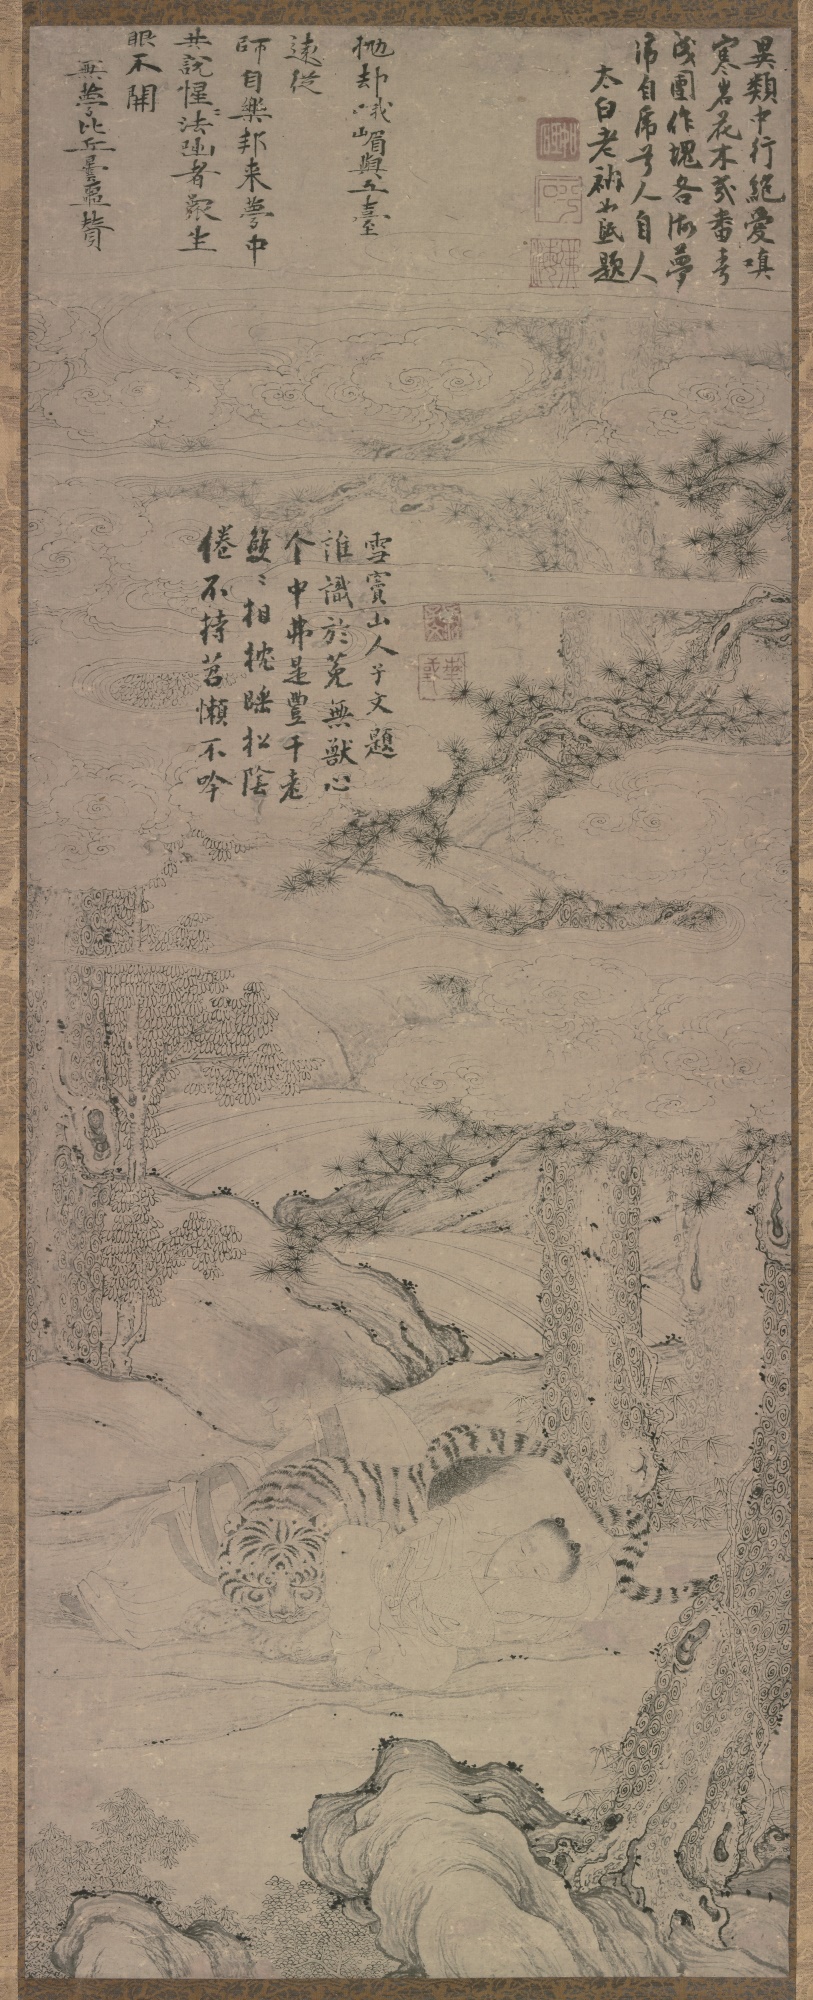 異類中行絕愛嗔
寒岩花木幾番春
成團作塊各酣夢
虎自虎兮人自人
太白老衲如砥題
拋却峨嵋與五臺
遠從
師自樂邦来夢中
共說惺〻法者衆生
眼不開
無夢比丘曇噩贊
倦不持苕懶不吟
雙〻相枕睡松陰
个中弗是豐干老
誰識於菟無獸心
雪竇山人子文題